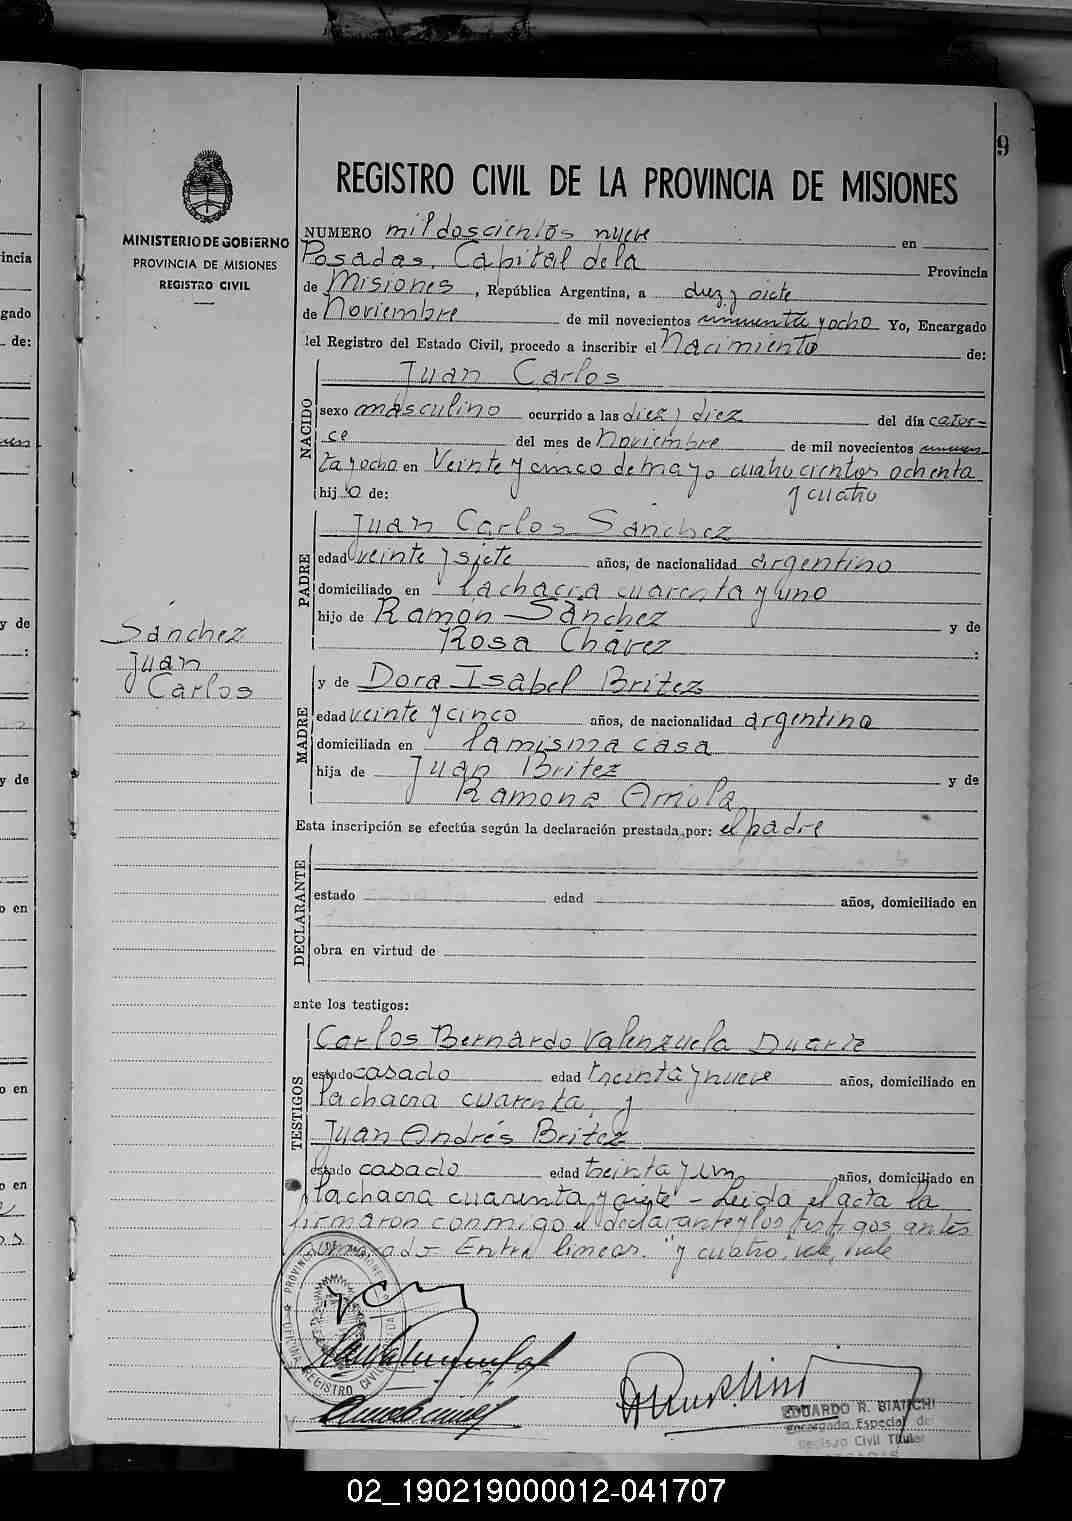 9
REGISTRO CIVIL DE LA PROVINCIA DE MISIONES
MINISTERIO DE GOBIERNO
PROVINCIA DE MISIONES
REGISTRO CIVIL
NUMERO mil doscientos nueve en
Posadas, Capital de la Provincia
de Misiones, República Argentina, a diez y siete
de Noviembre de mil novecientos cincuenta y ocho Yo, Encargado
del Registro del Estado Civil, procedo a inscribir el Nacimiento de:
NACIDO
Juan Carlos
sexo masculino ocurrido a las diez y diez del día cator-
ce del mes de Noviembre de mil novecientos cincuen-
ta y ocho en Veinte y cinco de mayo cuatrocientos ochenta
hijo de: y cuatro
PADRE
Juan Carlos Sánchez
edad veinte y siete años, de nacionalidad argentino
domiciliado en la chacra cuarenta y uno
hijo de Ramón Sánchez y de
Rosa Chávez :
Sánchez
Juan
Carlos
MADRE
y de Dora Isabel Britez
edad veinte y cinco años, de nacionalidad argentina
domiciliada en la misma casa
hija de Juan Britez y de
Ramona Arriola
Esta inscripción se efectúa según la declaración prestada por: el padre
DECLARANTE
estado edad años, domiciliado en
obra en virtud de
ante los testigos:
TESTIGOS
Carlos Bernardo Valenzuela Duarte
estado casado edad treinta y nueve años, domiciliado en
la chacra cuarenta, y
Juan Andrés Britez
estado casado edad treinta y un años, domiciliado en
la chacra cuarenta y siete - Leida el acta la
firmaron conmigo el declarante y los testigos antes
Entre lineas: "y cuatro, vale, vale
REGISTRO CIVIL
EDUARDO R. BIANCHI
Encargado Especial del
Registro Civil Titular
POSADAS
02_190219000012-041707